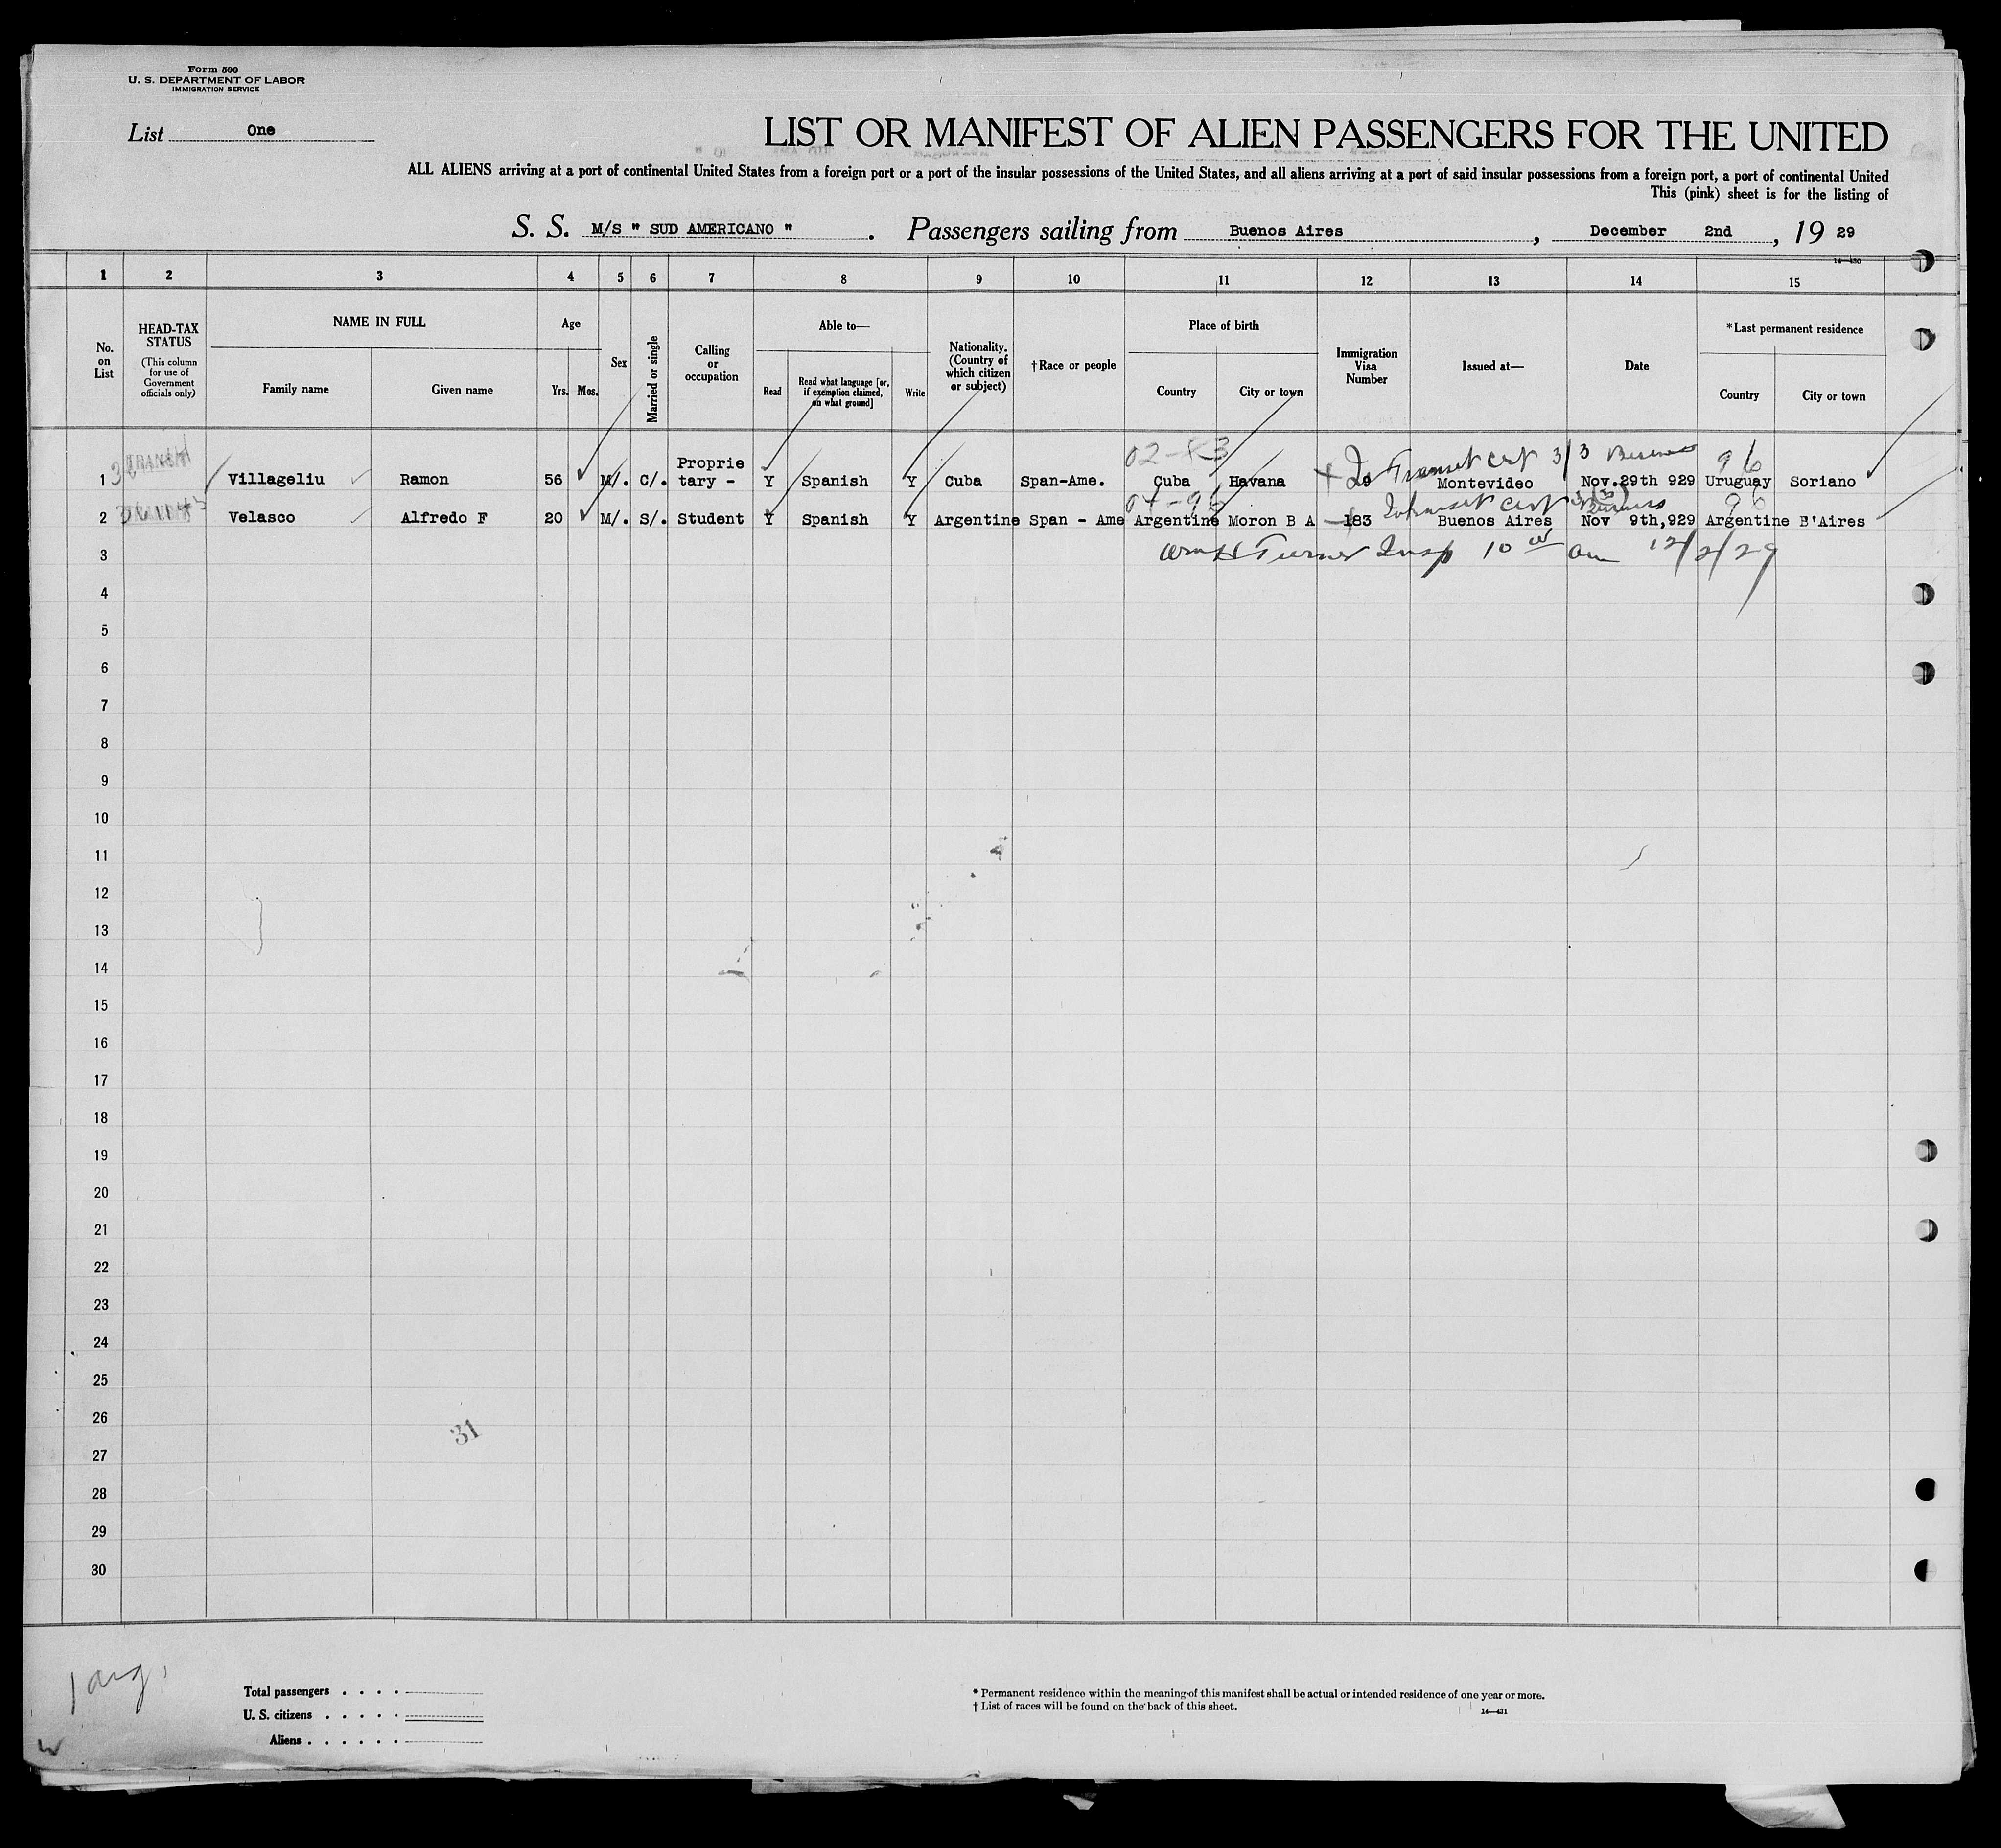 Form 500
U. S. DEPARTMENT OF LABOR
IMMIGRATION SERVICE
List One
LIST OR MANIFEST OF ALIEN PASSENGERS FOR THE UNITED
ALL ALIENS arriving at a port of continental United States from a foreign port or a port of the insular possessions of the United States, and all aliens arriving at a port of said insular possessions from a foreign port, a port of continental United
This (pink) sheet is for the listing of
S. S. M/S " SUD AMERICANO " . Passengers sailing from Buenos Aires , December 2nd , 19 29
14—430
1 2 3 4 5 6 7 8 9 10 11 12 13 14 15
No. on List
HEAD-TAX STATUS
(This column for use of Government officials only)
NAME IN FULL
Family name
Given name
Age
Yrs. Mos.
Sex
Married or single
Calling or occupation
Able to—
Read
Read what language [or, if exemption claimed, on what ground]
Write
Nationality. (Country of which citizen or subject)
†Race or people
Place of birth
Country
City or town
Immigration Visa Number
Issued at—
Date
*Last permanent residence
Country
City or town
TRANSIT 02-83 Transit cert 3/3 96
1 Villageliu Ramon 56 M/. C/. Proprie tary - Y Spanish Y Cuba Span-Ame. Cuba Havana Montevideo Nov.29th 929 Uruguay Soriano
2 Velasco Alfredo F 20 M/. S/. Student Y Spanish Y Argentine Span - Ame Argentine Moron B A 183 Buenos Aires Nov 9th,929 Argentine B'Aires
3 Turner Insp 10 am 12/2/29
4
5
6
7
8
9
10
11
12
13
14
15
16
17
18
19
20
21
22
23
24
25
26
31
27
28
29
30
1 arg.
Total passengers . . . .
U. S. citizens . . . . .
Aliens . . . . . .
* Permanent residence within the meaning of this manifest shall be actual or intended residence of one year or more.
† List of races will be found on the back of this sheet.
14—431